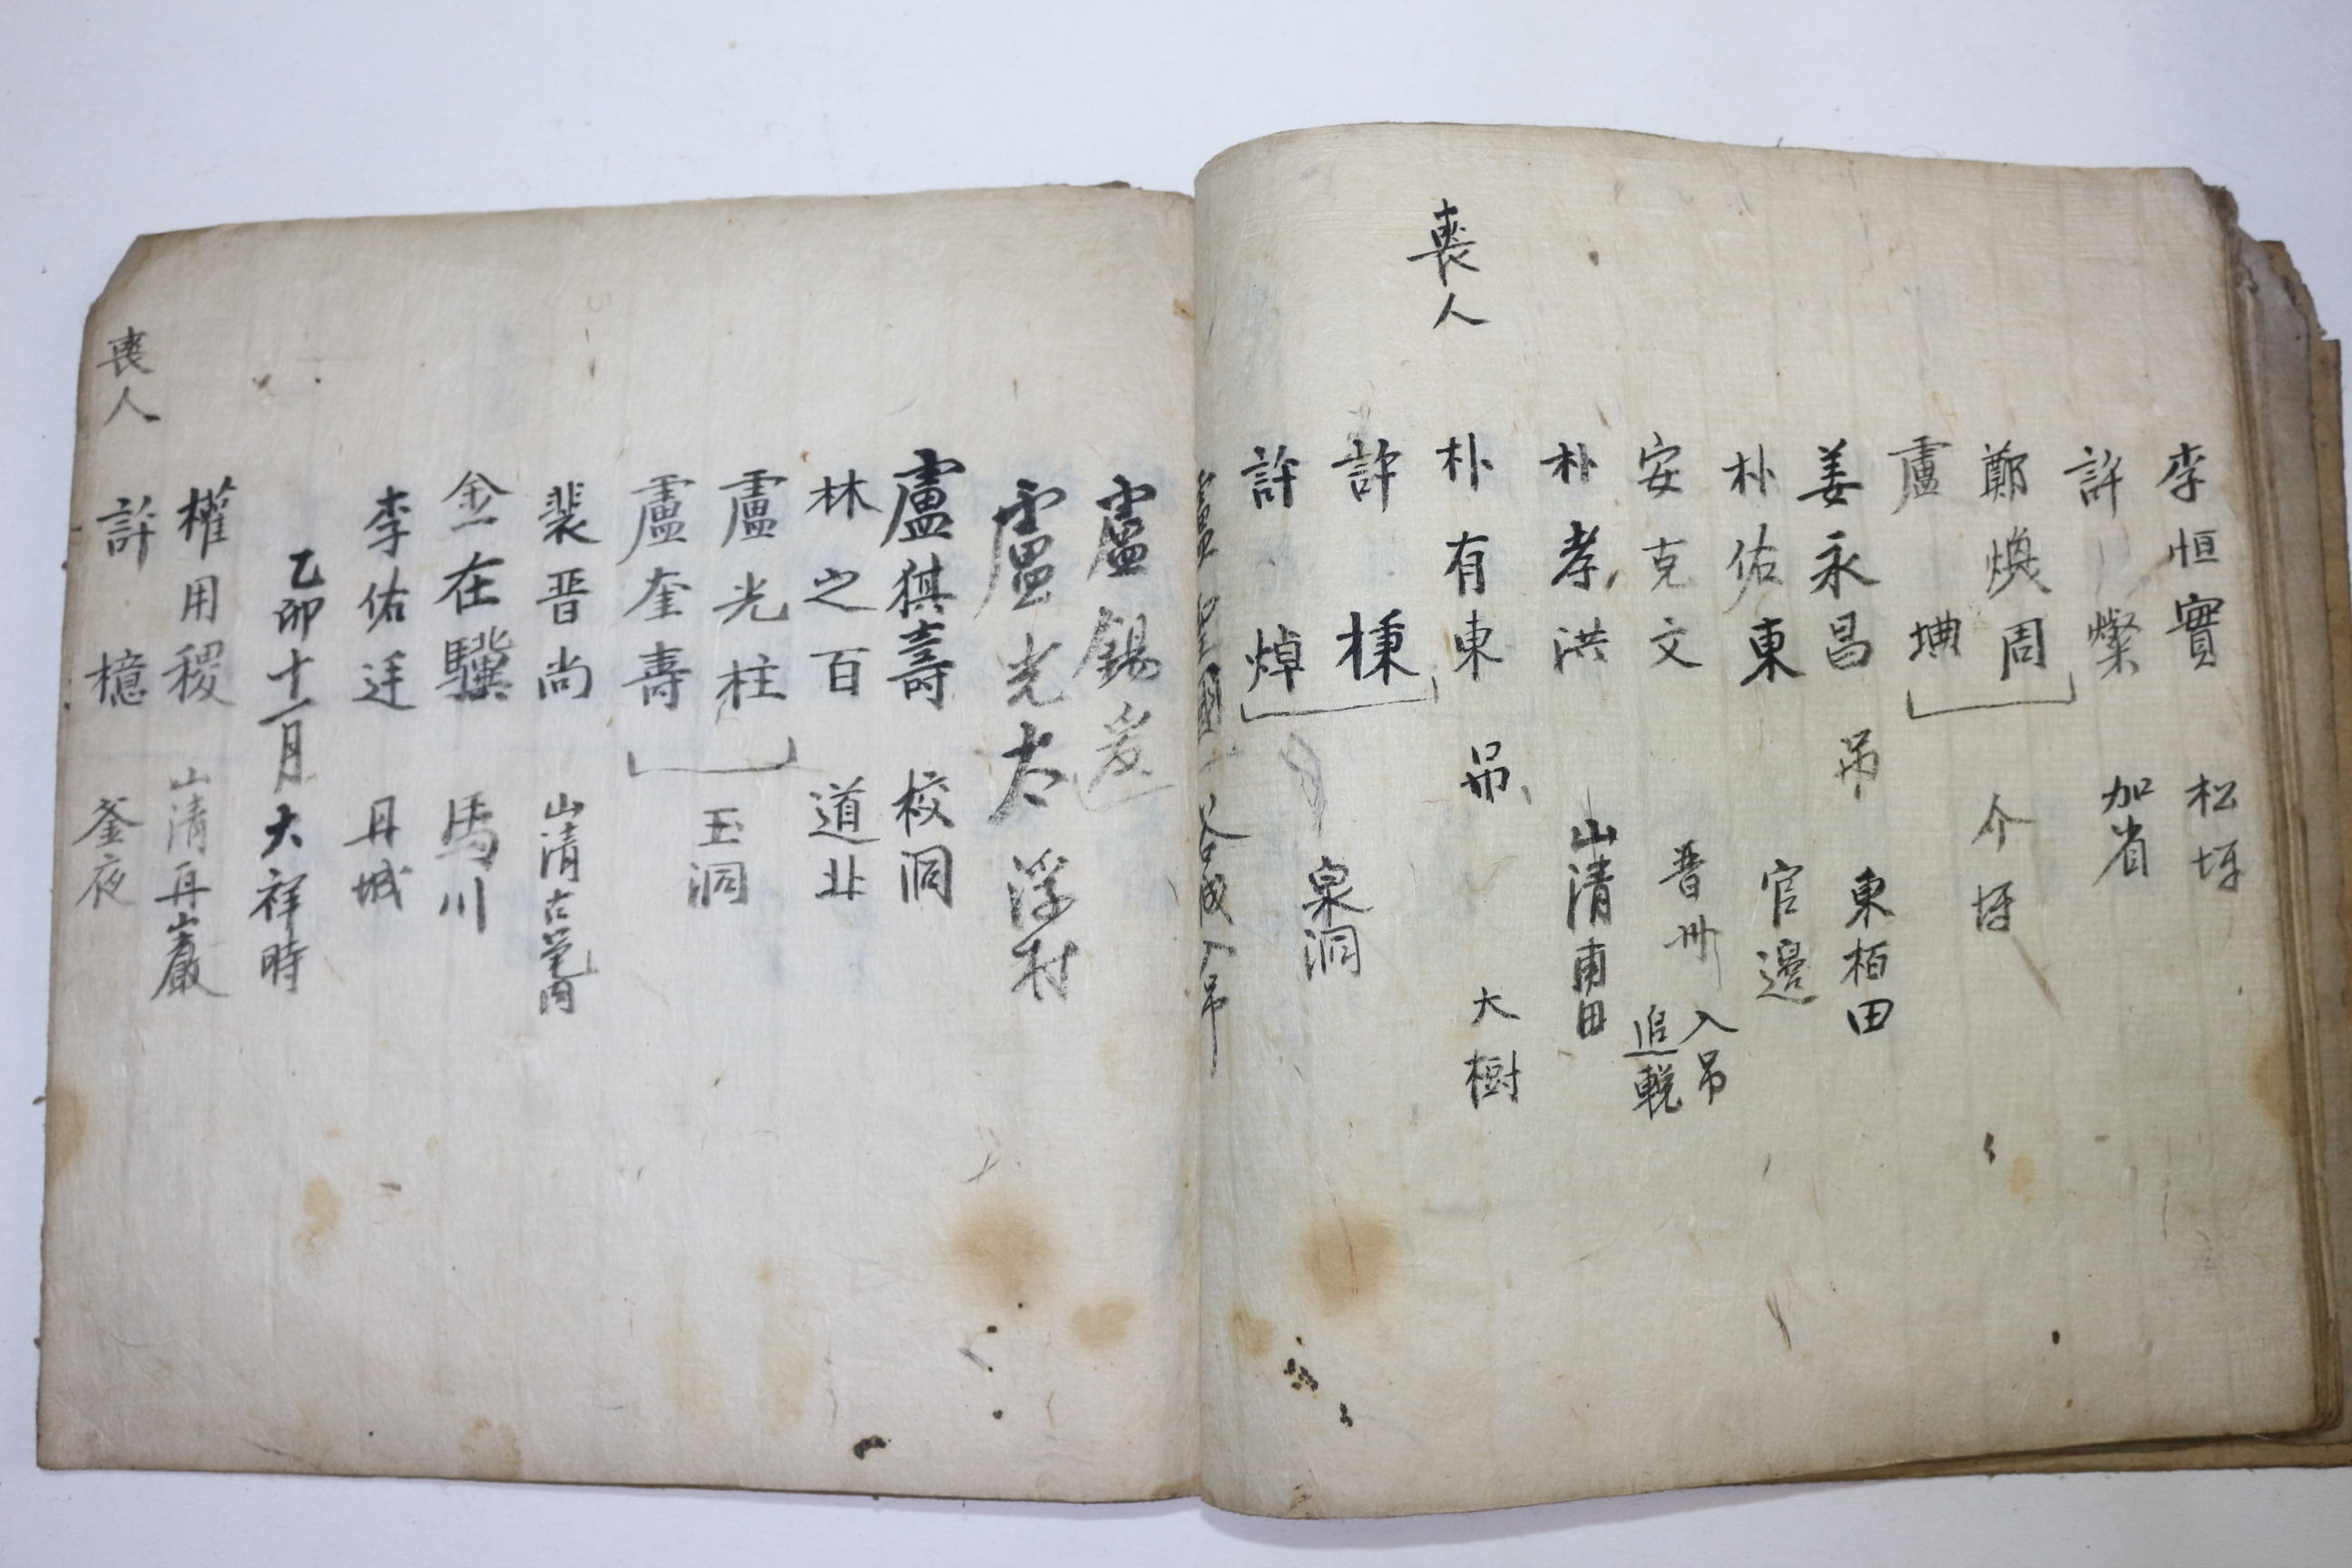 李恒實 松坪
許 燦 加省
鄭煥周
盧 㙉 介坪
姜永昌 吊 東栢田
朴佑東 官邊
安克文 晋州 入吊 追輓
朴孝洪 山清甫田
喪人 朴有東 吊 大樹
許 秉
許 焯 泉洞
盧 國 入吊
盧錫
盧光太 浮村
盧祺壽 校洞
林之百 道北
盧光柱
盧奎壽 玉洞
裴晋尚 山清古邑內
金在驥 馬川
李佑 丹城
乙卯十一月大祥時
權用稷 山清丹巖
喪人 許 檍 釜夜